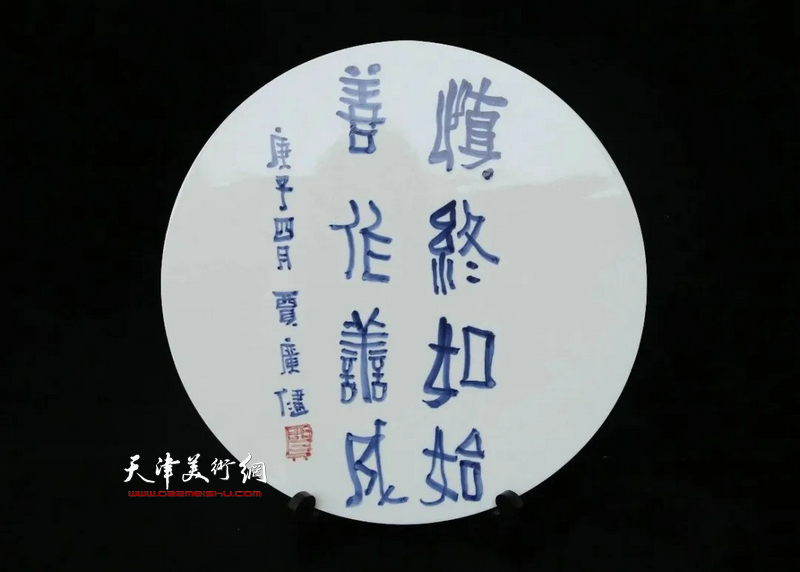 慎終如始
善作譱成
庚子四月 賈廣健
賈
天津美術網
www.026meishu.com